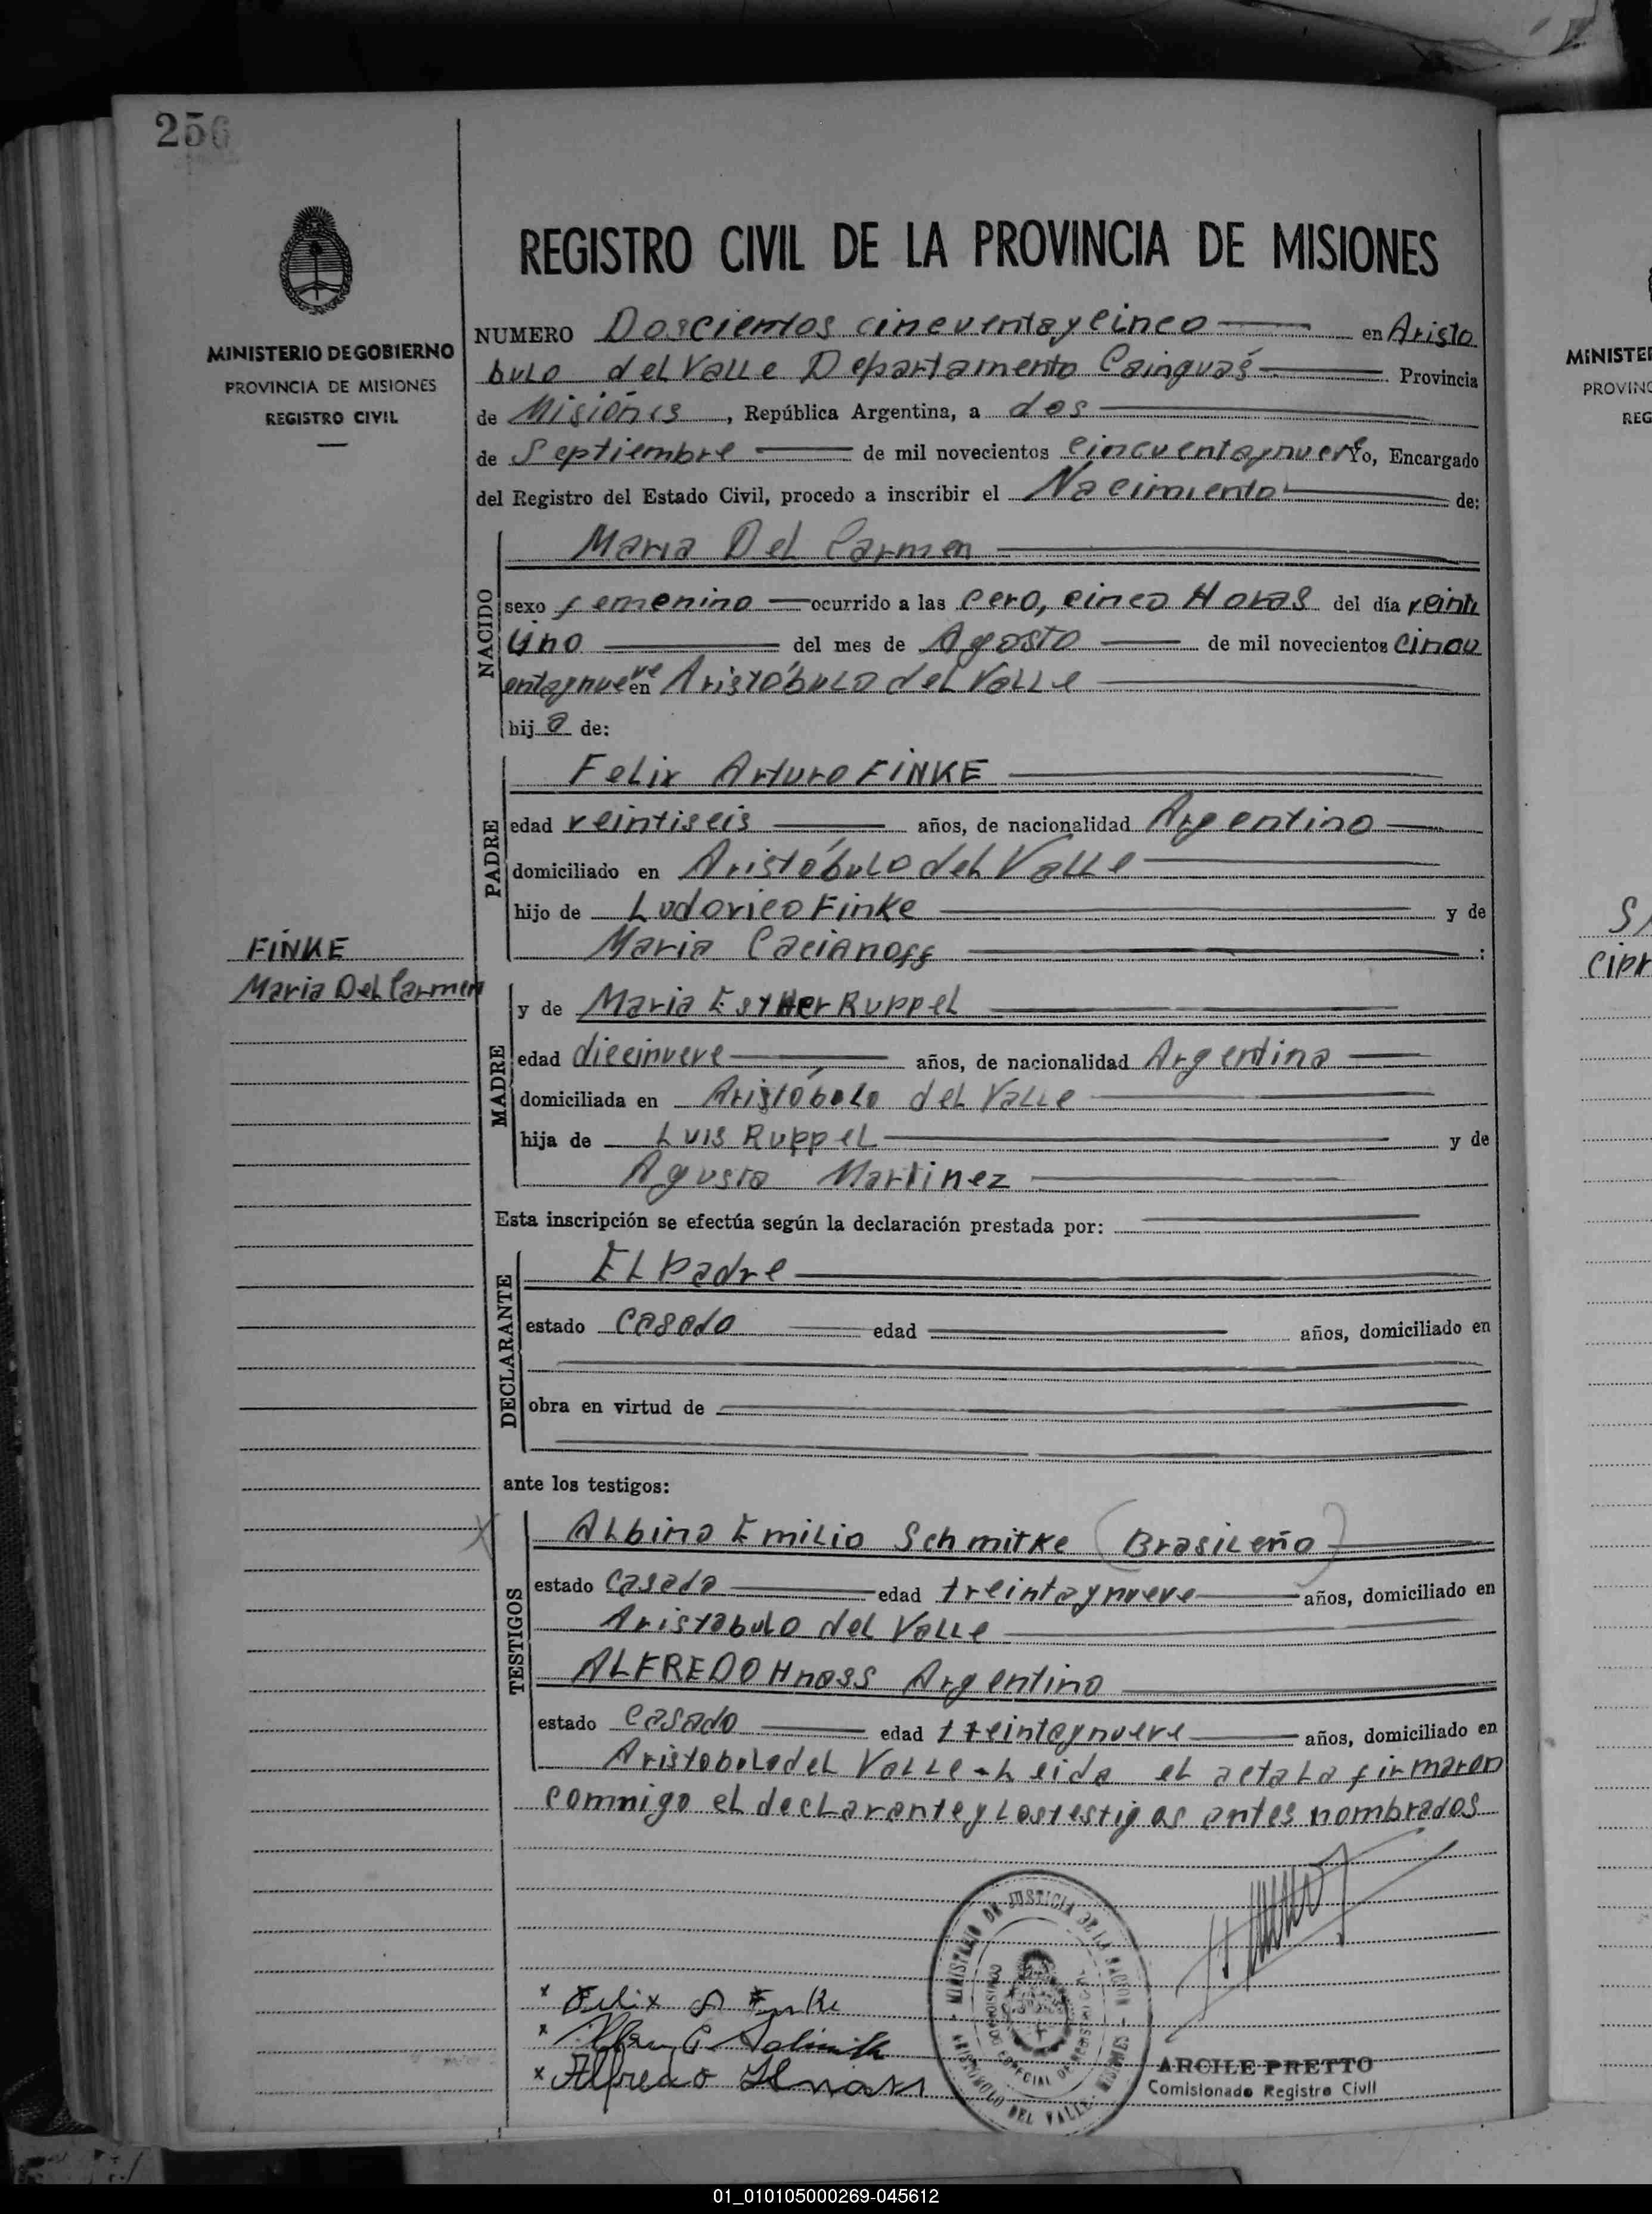 256
REGISTRO CIVIL DE LA PROVINCIA DE MISIONES
MINISTERIO DE GOBIERNO
PROVINCIA DE MISIONES
REGISTRO CIVIL
NUMERO Doscientos cincuenta y cinco en Aristo
bulo del Valle Departamento Cainguás Provincia
de Misiónes, República Argentina, a dos
de Septiembre de mil novecientos cincuentaynueve Yo, Encargado
del Registro del Estado Civil, procedo a inscribir el Nacimiento de:
NACIDO
Maria Del Carmen
sexo femenino ocurrido a las Cero, cinco Horas del día veinti
Uno del mes de Agosto de mil novecientos cincu
entaynueve en Aristóbulo del Valle
hija de:
PADRE
Felix Arturo FINKE
edad veintiseis años, de nacionalidad Argentino
domiciliado en Aristóbulo del Valle
hijo de Ludovico Finke y de
Maria Cacianoff :
FINKE
Maria Del Carmen
MADRE
y de Maria Esther Ruppel
edad diecinueve años, de nacionalidad Argentina
domiciliada en Aristóbolo del Valle
hija de Luis Ruppel y de
Agusta Martinez
Esta inscripción se efectúa según la declaración prestada por:
DECLARANTE
El Padre
estado casado edad años, domiciliado en
obra en virtud de
ante los testigos:
TESTIGOS
Albino Emilio Schmitke (Brasileño)
estado casado edad treintaynueve años, domiciliado en
Aristobulo del Valle
ALFREDO Hnass Argentino
estado casado edad treintaynueve años, domiciliado en
Aristobolo del Valle - Leida el acta La firmaron
commigo el declarante y Los testigos antes nombrados
x Felix A Finke
x
x Alfredo Hnass
MINISTERIO DE JUSTICIA DE LA NACION
ARISTOBULO DEL VALLE MISIONES
ARCILE PRETTO
Comisionado Registro Civil
MINISTE
PROVINC
REG
01_010105000269-045612